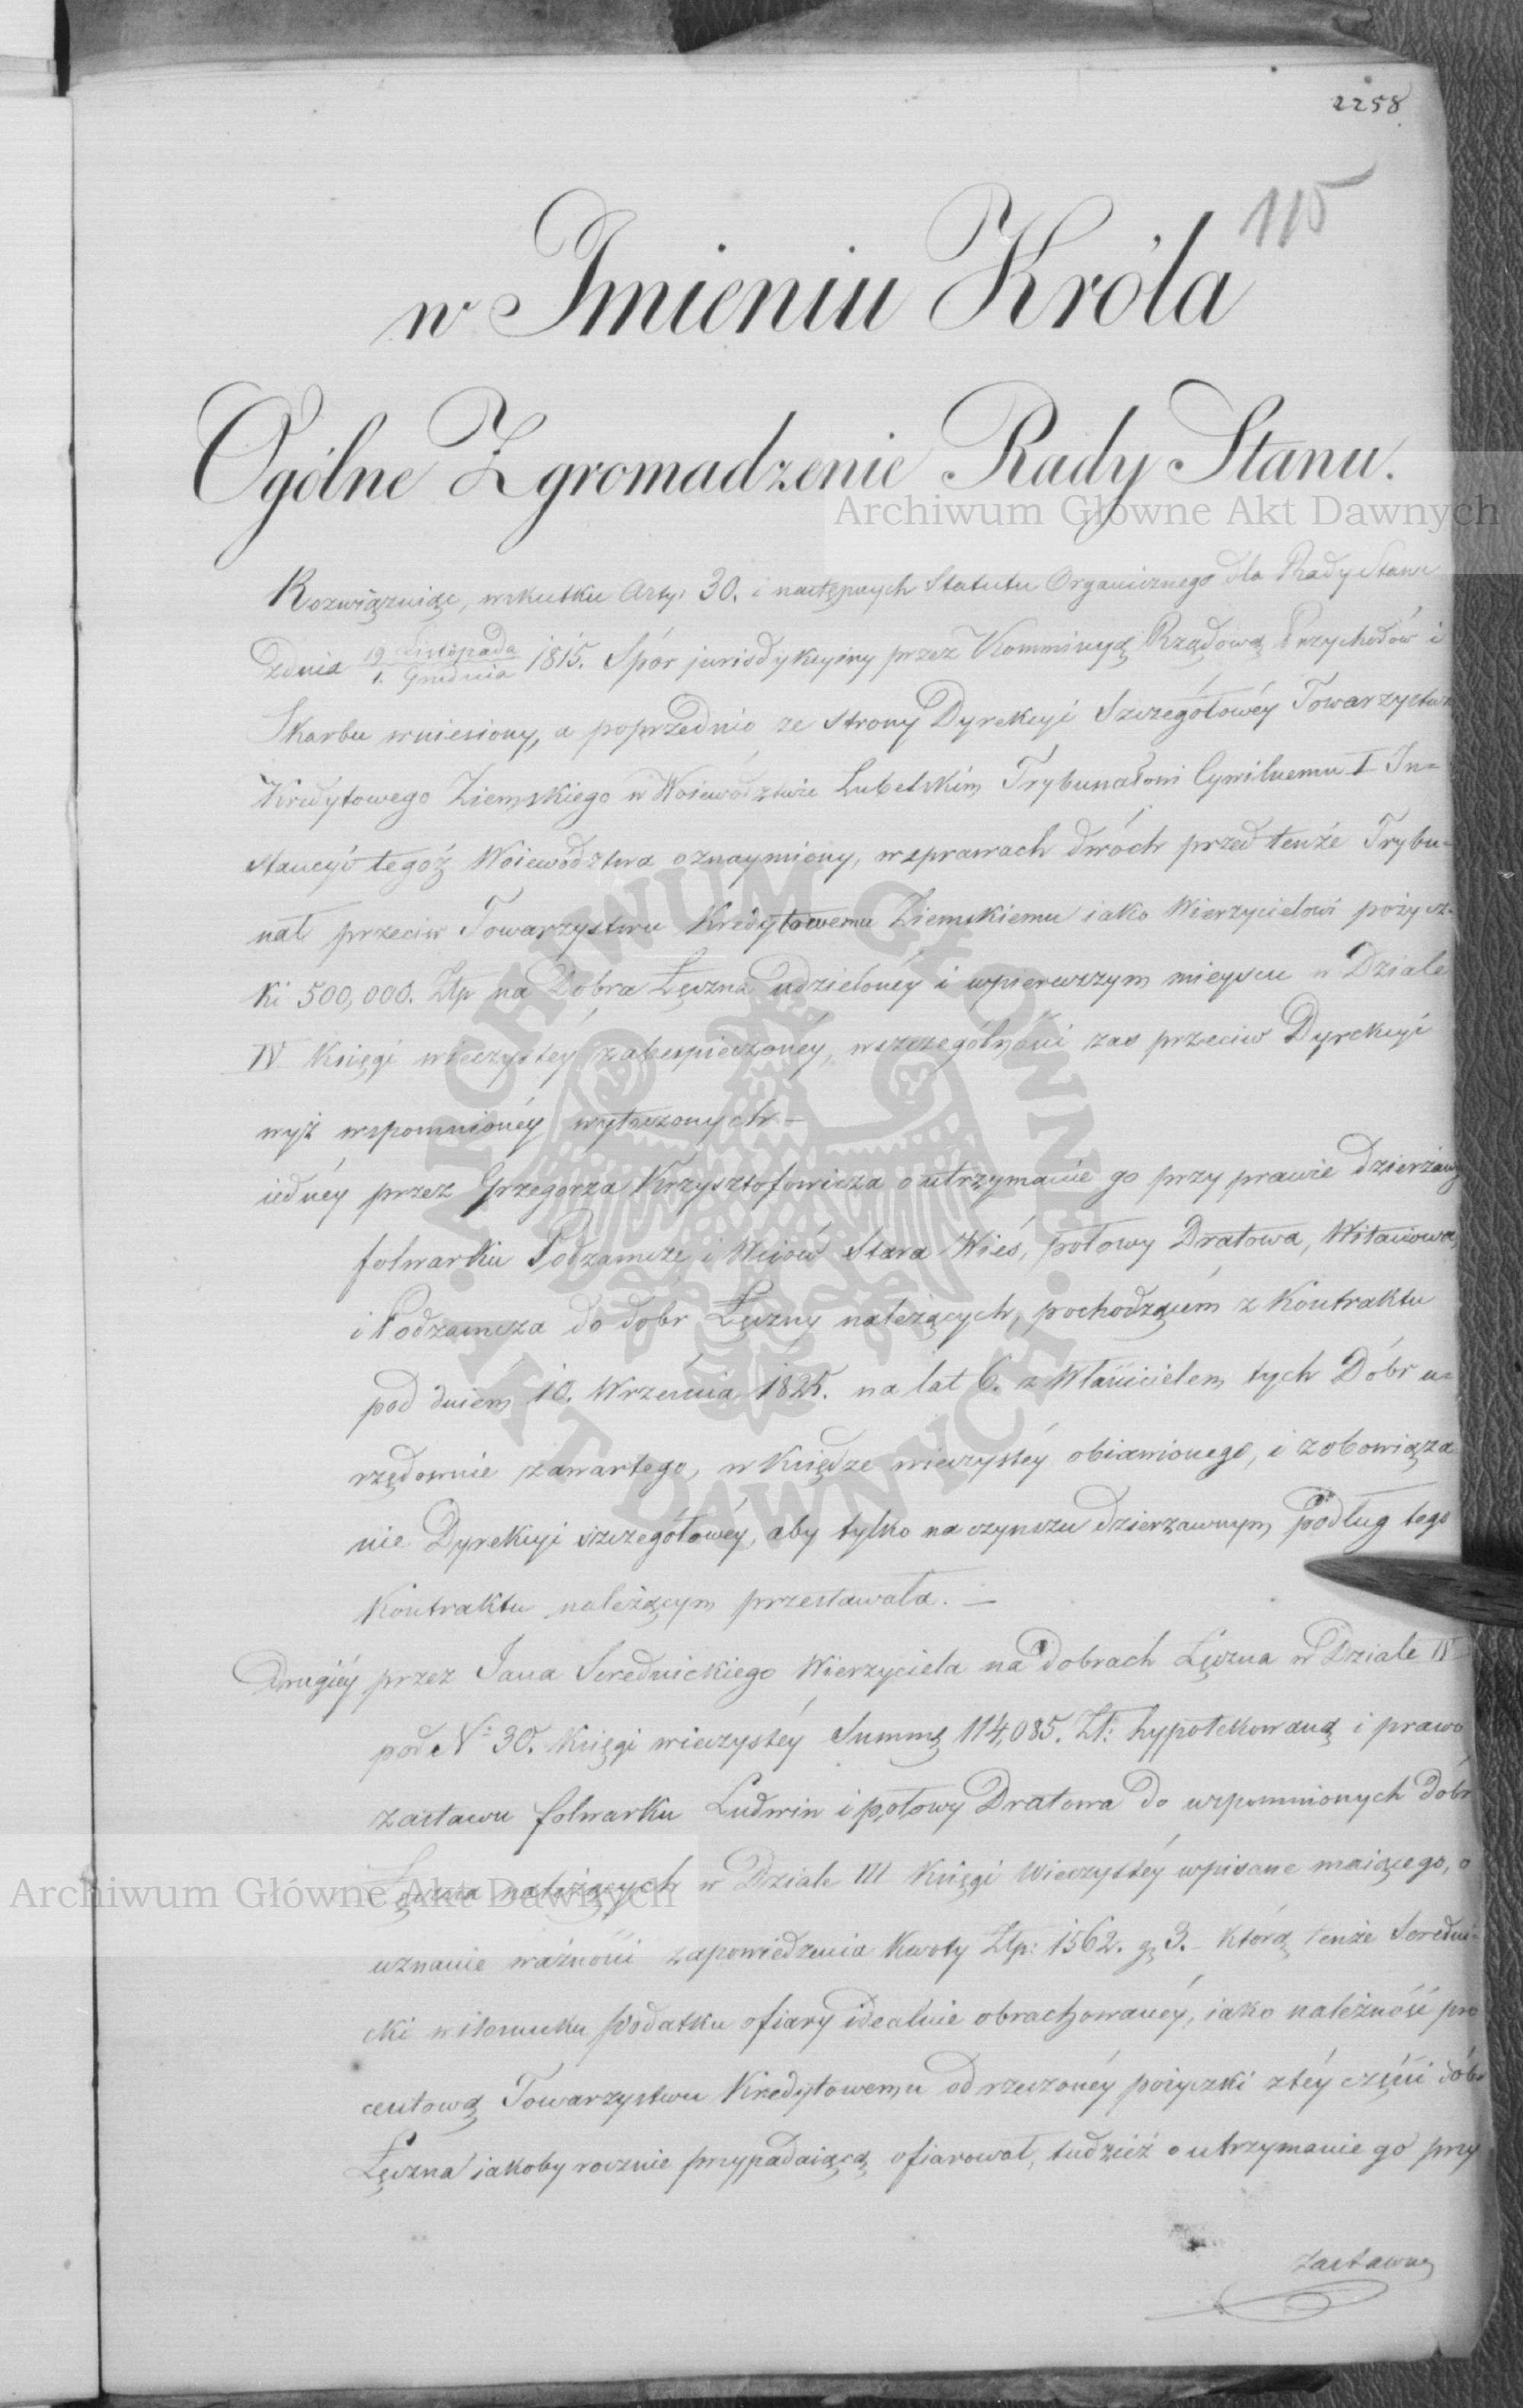 2258
115
w Imieniu Króla
Ogólne Zgromadzenie Rady Stanu.
Archiwum Główne Akt Dawnych
Rozwiązuiąc, wskutku Arty: 30. i następnych Statutu Organicznego dla Rady Stanu
zdnia 19 Listopada / 1. Grudnia 1815. Spór jurisdykcyiny przez Kommissyą Rządową Przychodów i
Skarbu wniesiony, a poprzednio ze strony Dyrekcyi Szczegółowéy Towarzystwa
Kredytowego Ziemskiego w Woiewództwie Lubelskim Trybunałowi Cywilnemu I In=
stancyi tegóż Woiewództwa oznaymiony, w sprawach dwóch przed tenże Trybu=
nał przeciw Towarzystwu Kredytowemu Ziemskiemu iako Wierzycielowi pożycz=
ki 500,000. Złp na Dobra Łęczna udzielonéy i wpierwszym mieyscu w Dziale
IV Księgi wieczystéy zabespieczonéy, wszczególności zas przeciw Dyrekcyi
wyż wspomnionéy wytoczonych –
iednéy przez Grzegorza Krzysztofowicza o utrzymanie go przy prawie dzierżawy
folwarku Podzamcze i Wsiów Stara Wieś, połowy Dratowa, Witaniowa,
i Podzamcza do dobr Łęczny należących, pochodzącém z Kontraktu
pod dniem 10. Września 1825. na lat 6. z Właścicielem tych Dóbr u=
rzędownie zawartego, w Księdze wieczystéy obiawionego, i zobowiąza
nie Dyrekcyi szczegółowéy, aby tylko na czynszu dzierzawnym, podług tego
Kontraktu należącym przestawała. –
Drugiéy przez Jana Serednickiego Wierzyciela na dobrach Łęczna w Dziale IV
pod N° 30. Księgi wieczystéy Summę 114,085. Zł: hypotekowaną i prawo
zastawu folwarku Ludwin i połowy Dratowa do wspomnionych dóbr
Łęczna należących w Dziale III Księgi Wieczystéy wpisane maiącego, o
Archiwum Główne Akt Dawnych
uznanie ważności zapowiedzenia Kwoty Złp: 1562. g 3. którą tenże Seredni=
cki w stosunku podatku ofiary idealnie obrachowanéy, iako należność pro
centową Towarzystwu Kredytowemu od rzeczonéy pożyczki z téy części dóbr
Łęczna iakoby rocznie przypadaiącą ofiarował, tudzież o utrzymanie go przy
zastawny
ARCHIWUM GŁÓWNE · AKT DAWNYCH ·